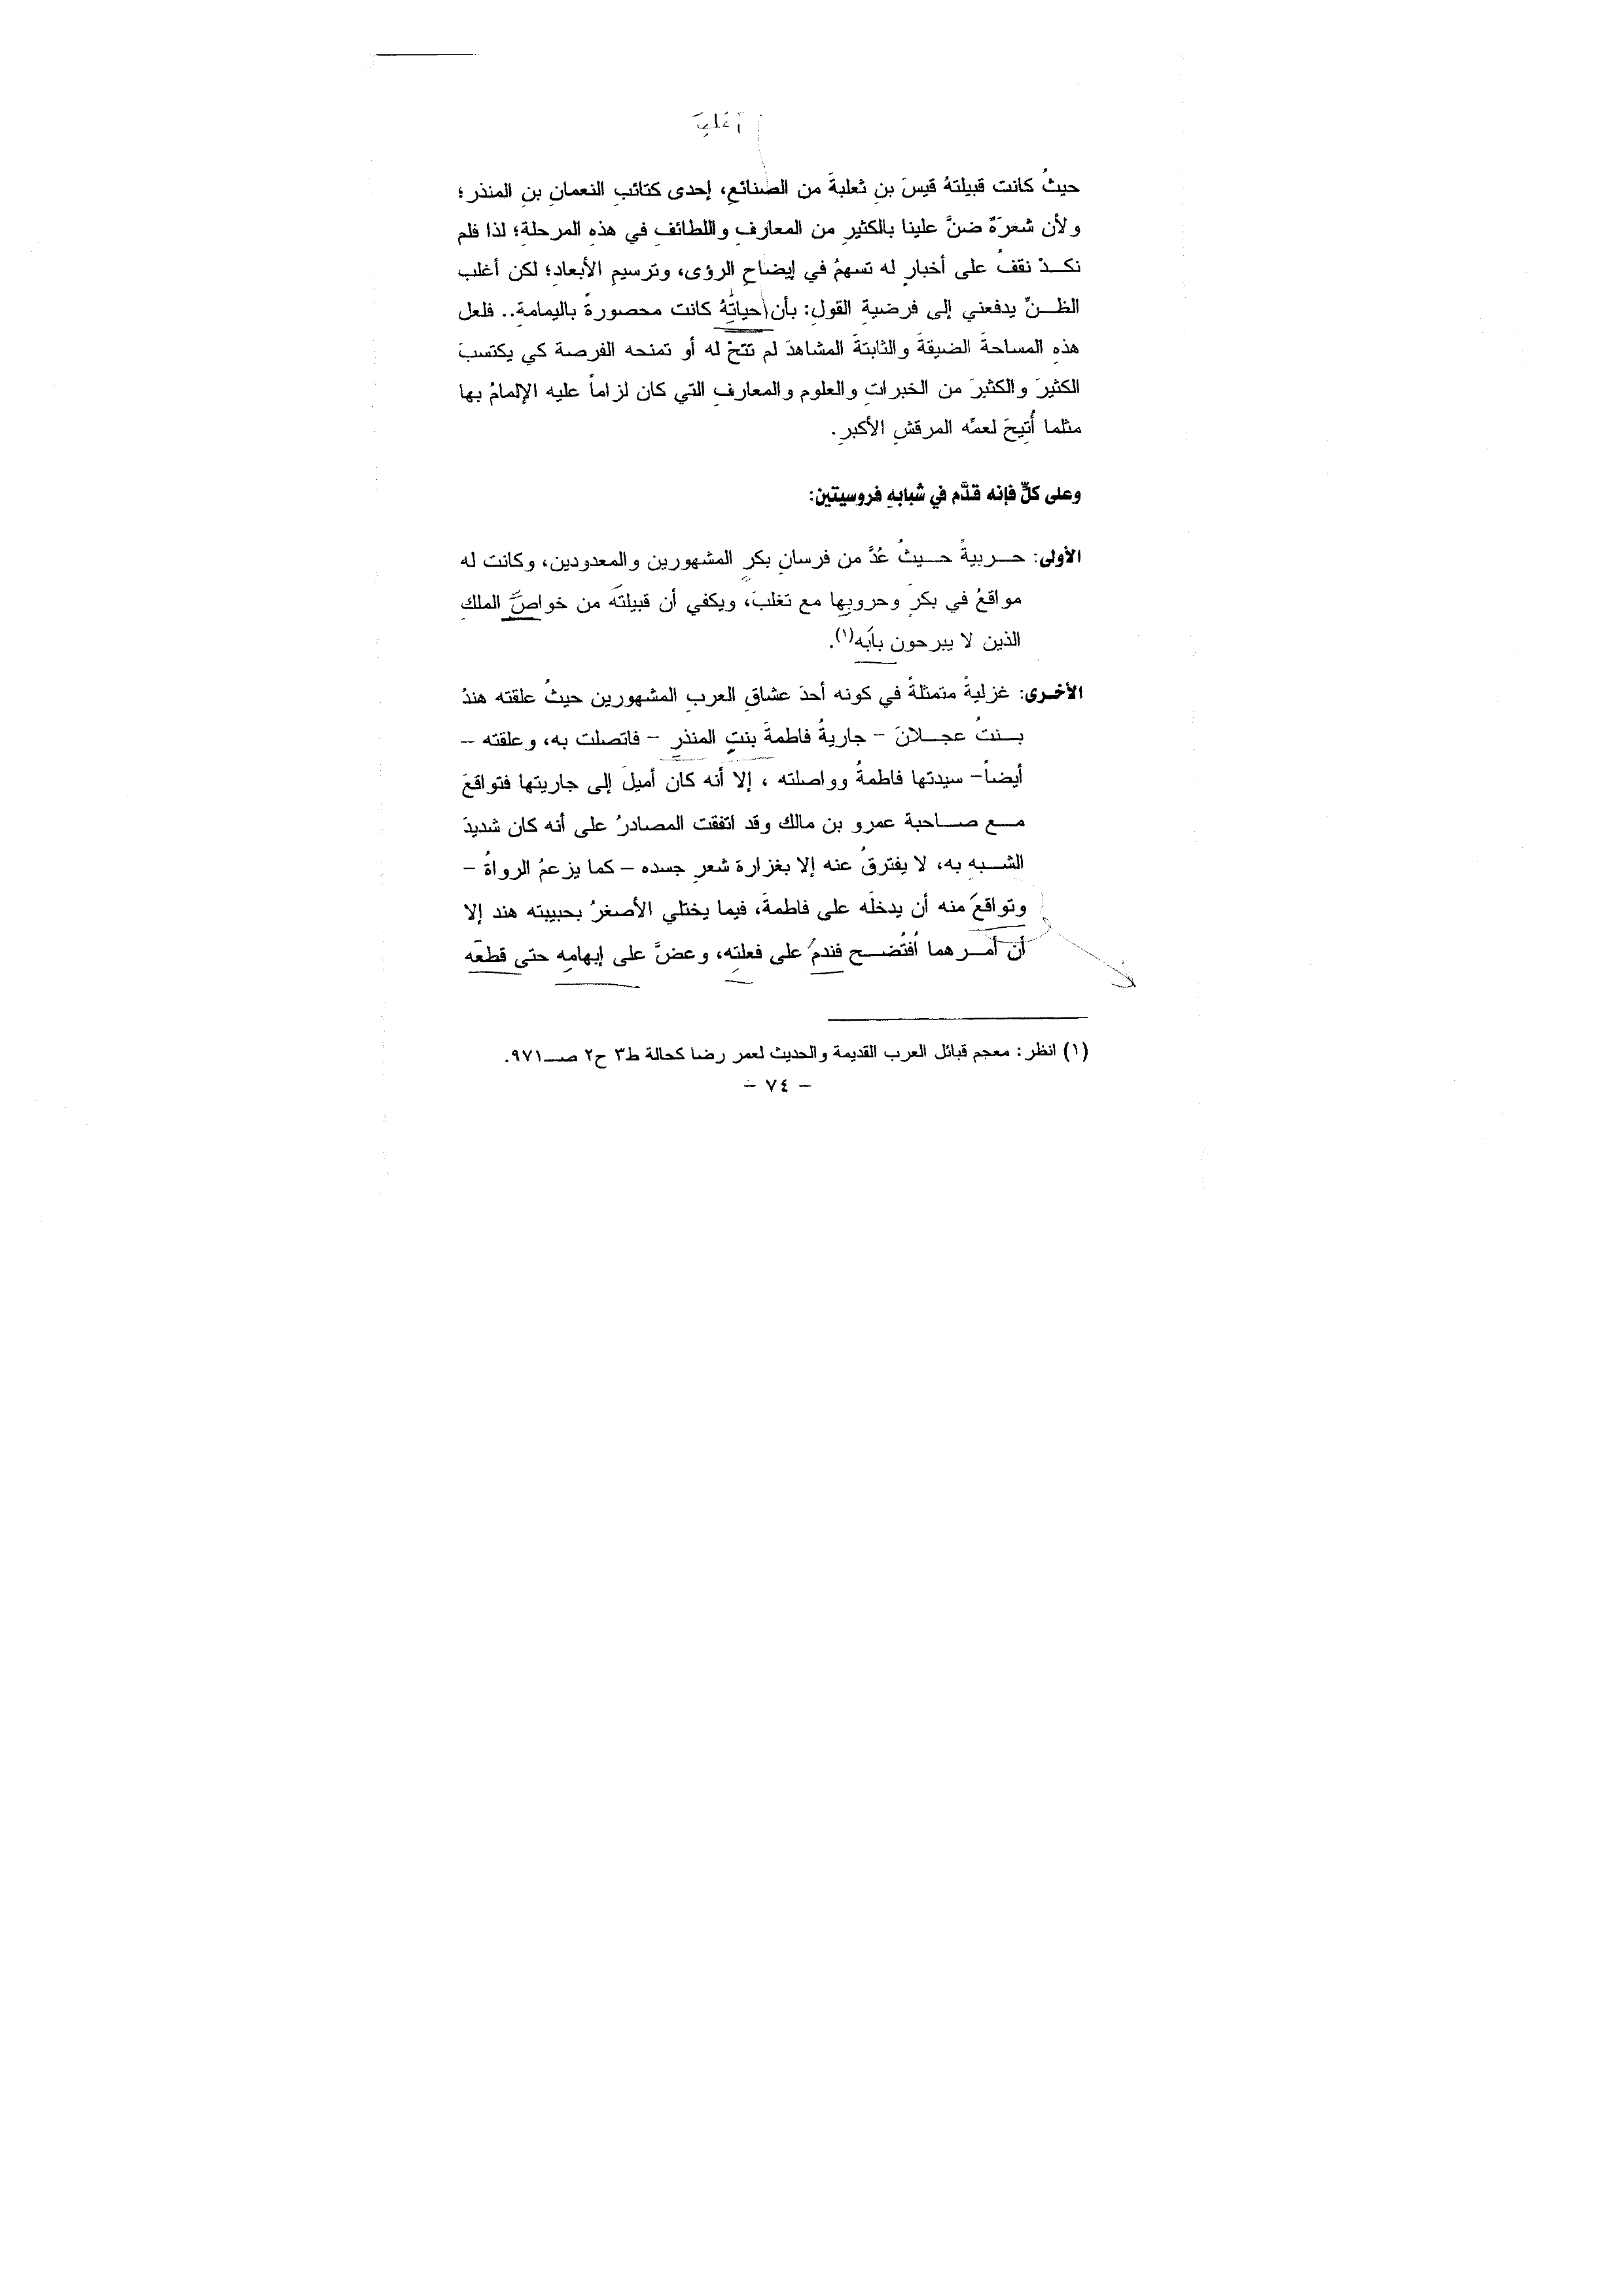 أغلبَ
حيثُ كانت قبيلتهُ قيسَ بنِ ثعلبةَ من الصنائعِ، إحدى كتائبِ النعمانِ بنِ المنذر؛
ولأن شعرَهُ ضنَّ علينا بالكثيرِ من المعارفِ واللطائفِ في هذهِ المرحلةِ؛ لذا فلم
نكـــدْ نقفُ على أخبارٍ له تسهمُ في إيضاحِ الرؤى، وترسيمِ الأبعادِ؛ لكن أغلب
الظـــنِّ يدفعني إلى فرضيةِ القولِ: بأن حياتِهُ كانت محصورةً باليمامةِ.. فلعل
هذهِ المساحةَ الضيقةَ والثابتةَ المشاهدَ لم تتحْ له أو تمنحه الفرصة كي يكتسبَ
الكثيرَ والكثيرَ من الخبراتِ والعلوم والمعارفِ التي كان لزاماً عليه الإلمامُ بها
مثلما أُتِيحَ لعمِّه المرقشِ الأكبرِ.
وعلى كلٍّ فإنه قدَّم في شبابهِ فروسيتين:
الأولى: حـــربيةً حـــيثُ عُدَّ من فرسانِ بكرٍ المشهورين والمعدودين، وكانت له
مواقعُ في بكرٍ وحروبِها مع تغلبَ، ويكفي أن قبيلتَه من خواصِّ الملكِ
الذين لا يبرحون بابَه(١).
الأخرى: غزليةً متمثلةً في كونه أحدَ عشاقِ العربِ المشهورين حيثُ علقته هندُ
بـــنتُ عجـــلانَ – جاريةُ فاطمةَ بنتِ المنذرِ – فاتصلت به، وعلقته –
أيضاً– سيدتها فاطمةُ وواصلته ، إلا أنه كان أميلَ إلى جاريتها فتواقعَ
مـــع صـــاحبة عمرو بن مالك وقد اتفقت المصادرُ على أنه كان شديدَ
الشـــبهِ به، لا يفترقُ عنه إلا بغزارة شعرِ جسده – كما يزعمُ الرواةُ –
وتواقعَ منه أن يدخلَه على فاطمةَ، فيما يختلي الأصغرُ بحبيبته هند إلا
أن أمـــرهما افتُضـــح فندمُ على فعلتِه، وعضَّ على إبهامِه حتى قطعَه
(١) انظر: معجم قبائل العرب القديمة والحديث لعمر رضا كحالة ط٣ ح٢ صـــ٩٧١.
– ٧٤ –